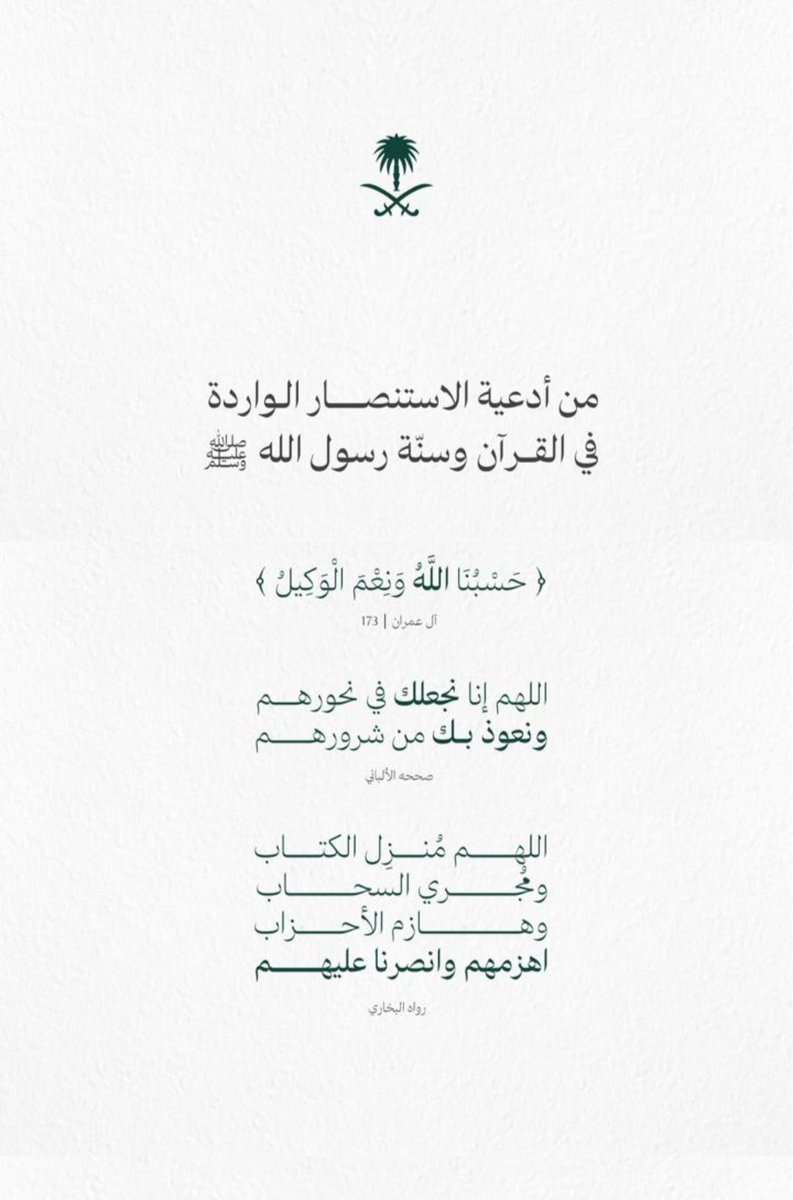 من أدعية الاستنصار الواردة
في القرآن وسنّة رسول الله ﷺ
﴿ حَسْبُنَا اللَّهُ وَنِعْمَ الْوَكِيلُ ﴾
آل عمران | 173
اللهم إنا نجعلك في نحورهم
ونعوذ بك من شرورهم
صححه الألباني
اللهم مُنزِل الكتاب
ومُجري السحاب
وهازم الأحزاب
اهزمهم وانصرنا عليهم
رواه البخاري